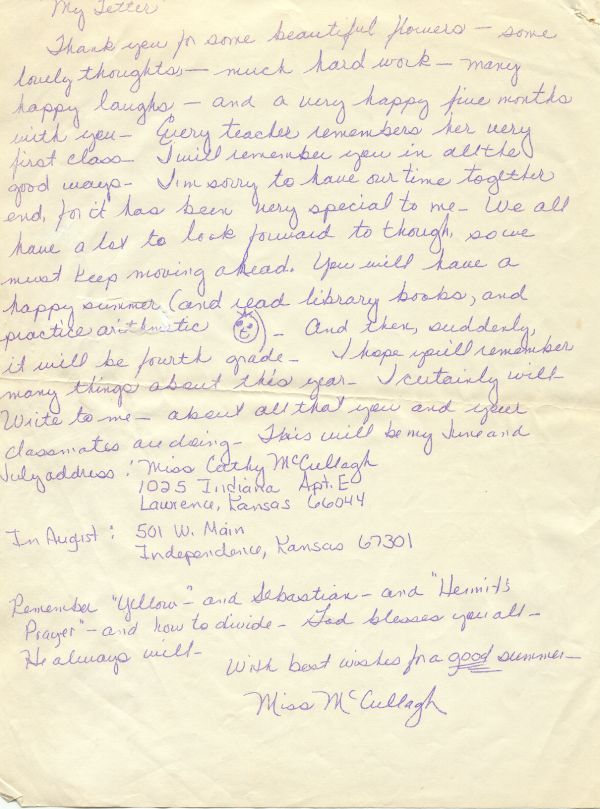 My Letter
Thank you for some beautiful flowers — some
lovely thoughts — much hard work — many
happy laughs — and a very happy five months
with you — Every teacher remembers her very
first class — I will remember you in all the
good ways — I'm sorry to have our time together
end, for it has been very special to me — We all
have a lot to look forward to though, so we
must keep moving ahead. You will have a
happy summer (and read library books, and
practice arithmetic ) — And then, suddenly,
it will be fourth grade — I hope you'll remember
many things about this year — I certainly will —
Write to me — about all that you and your
classmates are doing — This will be my June and
July address: Miss Cathy McCullagh
1025 Indiana Apt. E
Lawrence, Kansas 66044
In August: 501 W. Main
Independence, Kansas 67301
Remember "Yellow" — and Sebastian — and "Hermit's
Prayer" — and how to divide — God blesses you all —
He always will —
With best wishes for a good summer —
Miss McCullagh